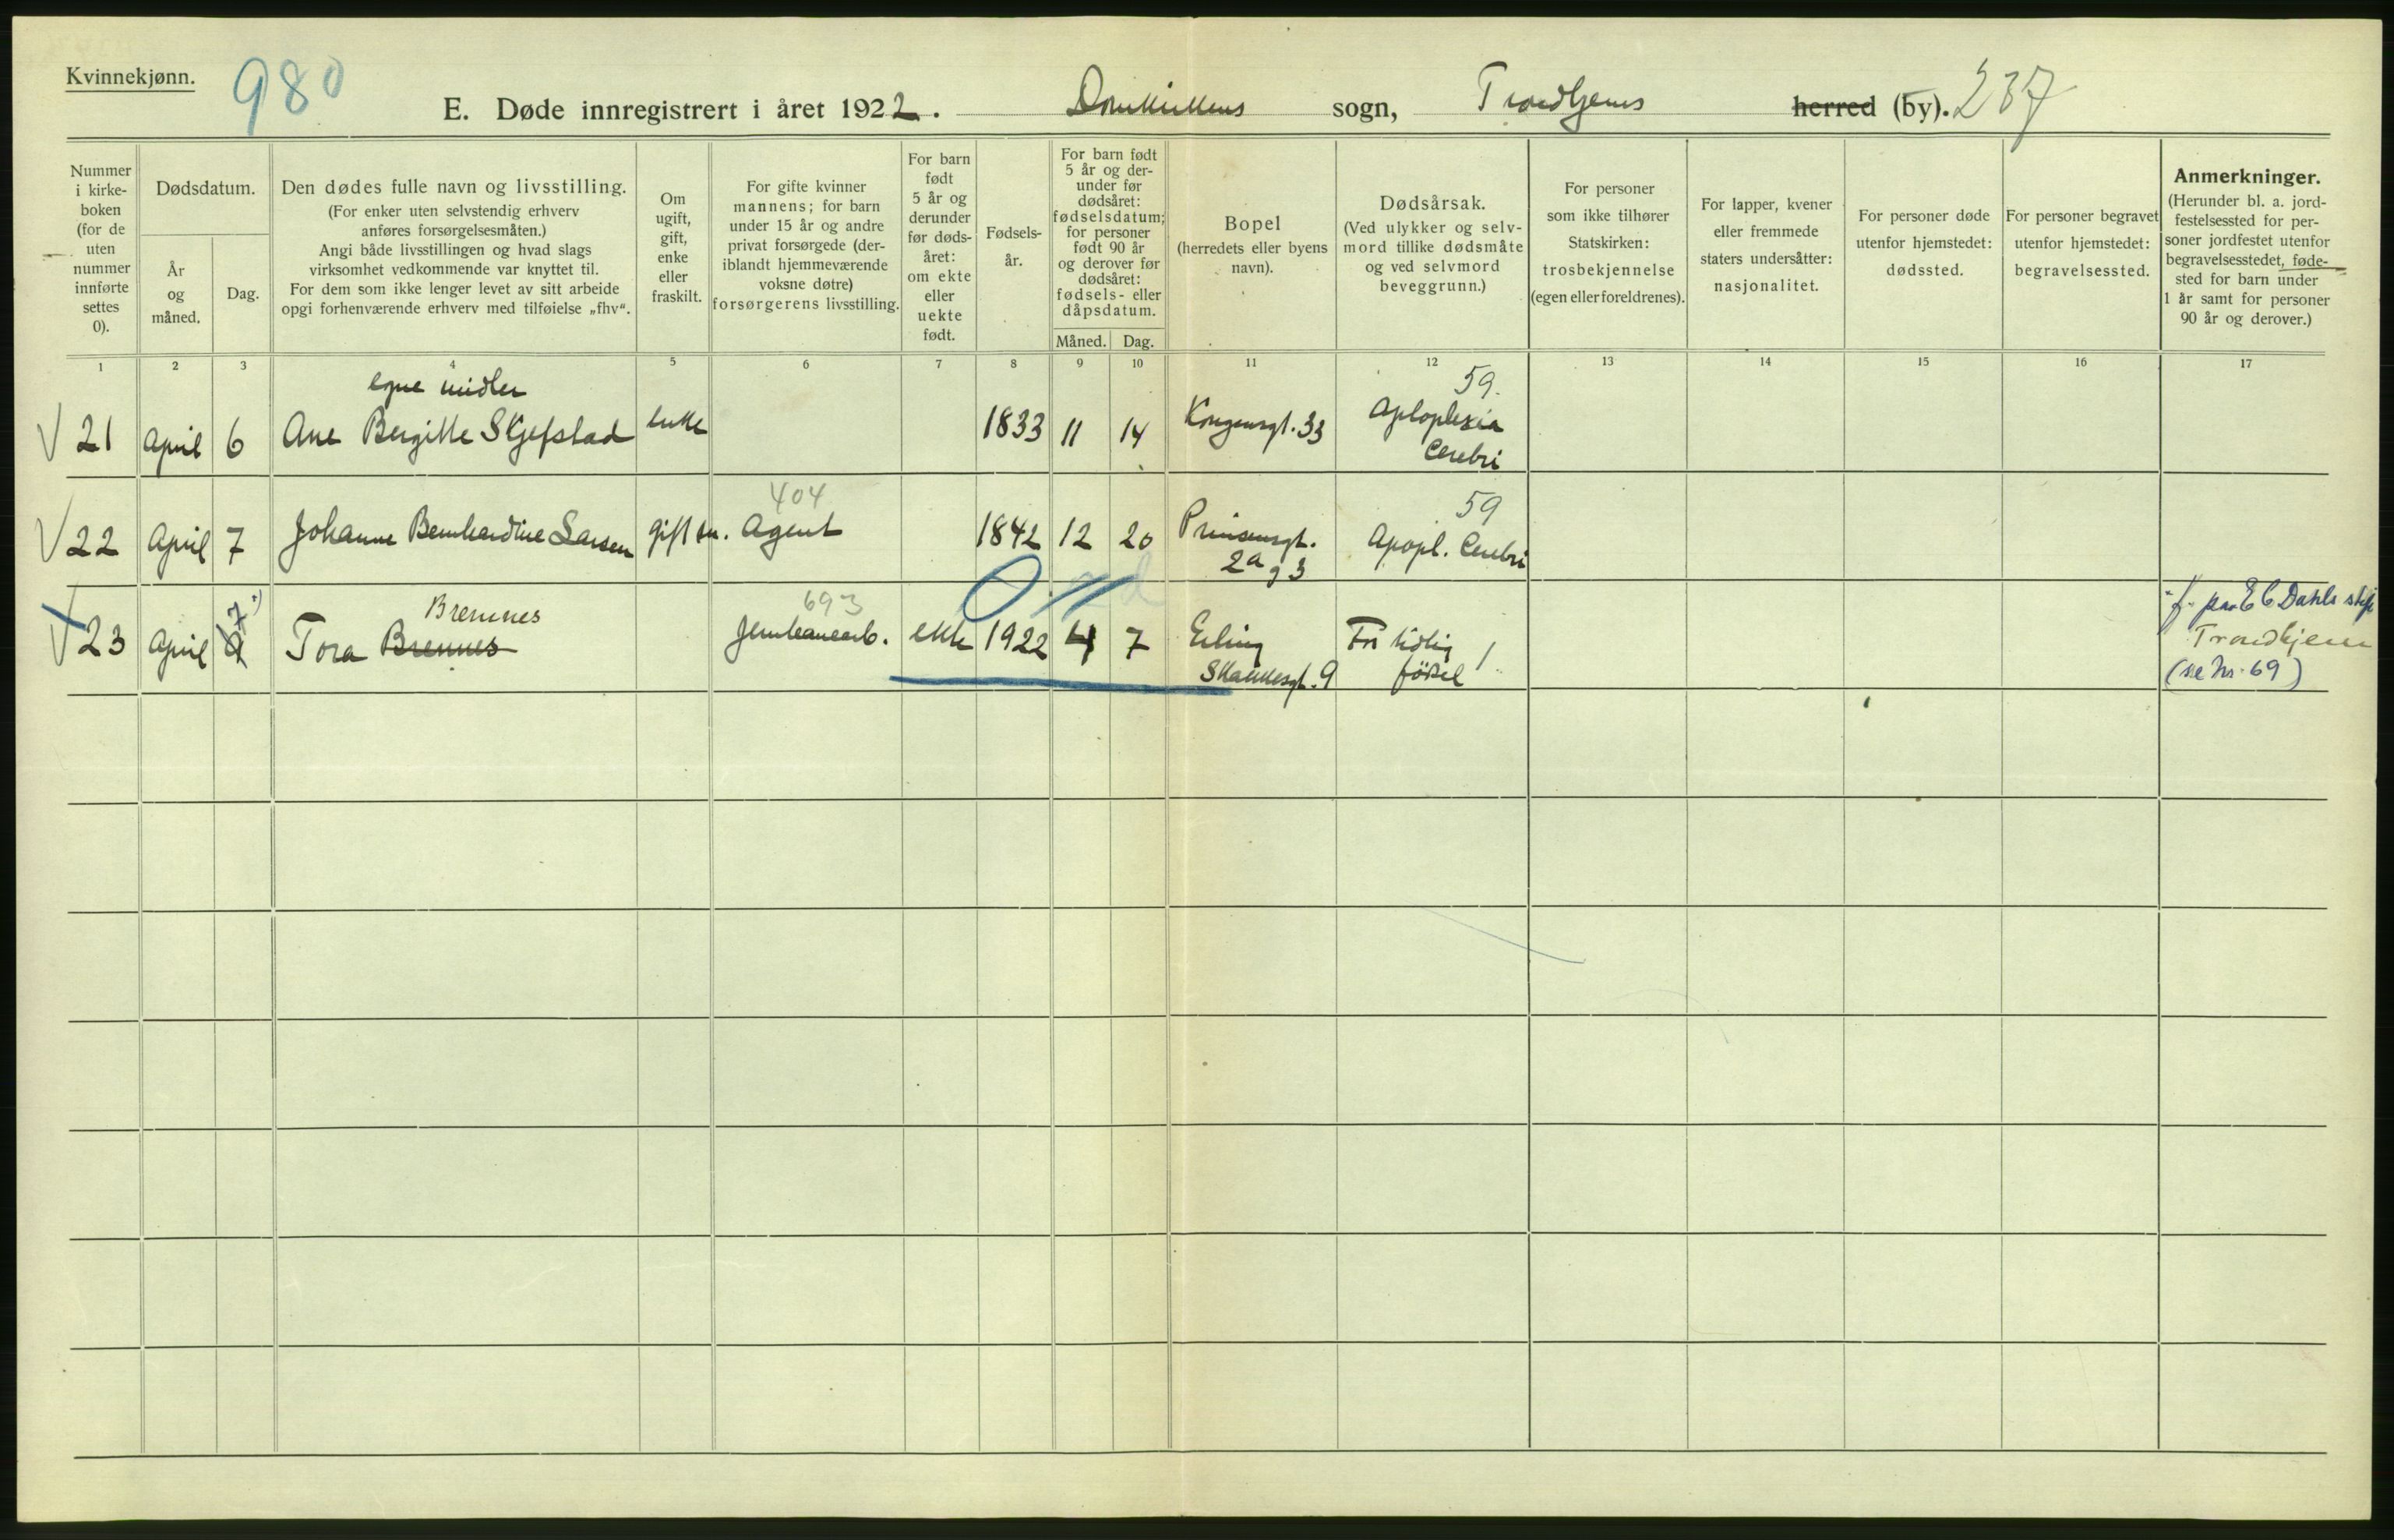 Kvinnekjønn.
980
E. Døde innregistrert i året 1922. Domkirkens sogn, Trondhjems herred (by). 237
Nummer i kirke- boken (for de uten nummer innførte settes 0).
Dødsdatum.
År og måned.
Dag.
Den dødes fulle navn og livsstilling.
(For enker uten selvstendig erhverv
anføres forsørgelsesmåten.)
Angi både livsstillingen og hvad slags
virksomhet vedkommende var knyttet til.
For dem som ikke lenger levet av sitt arbeide
opgi forhenværende erhverv med tilføielse „fhv“.
Om ugift, gift, enke eller fraskilt.
For gifte kvinner
mannens; for barn
under 15 år og andre
privat forsørgede (der-
iblandt hjemmeværende
voksne døtre)
forsørgerens livsstilling.
For barn født 5 år og derunder før døds- året: om ekte eller uekte født.
Fødsels- år.
For barn født
5 år og der-
under før
dødsåret:
fødselsdatum;
for personer
født 90 år
og derover før
dødsåret:
fødsels- eller
dåpsdatum.
Måned. Dag.
Bopel
(herredets eller byens
navn).
Dødsårsak.
(Ved ulykker og selv-
mord tillike dødsmåte
og ved selvmord
beveggrunn.)
For personer
som ikke tilhører
Statskirken:
trosbekjennelse
(egen eller foreldrenes).
For lapper, kvener
eller fremmede
staters undersåtter:
nasjonalitet.
For personer døde
utenfor hjemstedet:
dødssted.
For personer begravet
utenfor hjemstedet:
begravelsessted.
Anmerkninger.
(Herunder bl. a. jord-
festelsessted for per-
soner jordfestet utenfor
begravelsesstedet, føde-
sted for barn under
1 år samt for personer
90 år og derover.)
1 2 3 4 5 6 7 8 9 10 11 12 13 14 15 16 17
egne midler 59.
21 April 6 Ane Bergitte Skjefstad enke 1833 11 14 Kongensgt. 33 Aploplexia
Cerebri
404 59
22 April 7 Johanne Bernhardine Larsen gift Agent 1842 12 20 Prinsensgt. Apopl. Cerebri
Bremnes 693
23 April 7 Tora Brennes Jernbanearb. ekte 1922 4 7 Erling For tidlig 1
Skakkesgt. 9 födsel
f. paa E C Dahls stift
Trondhjem
(se nr. 69)